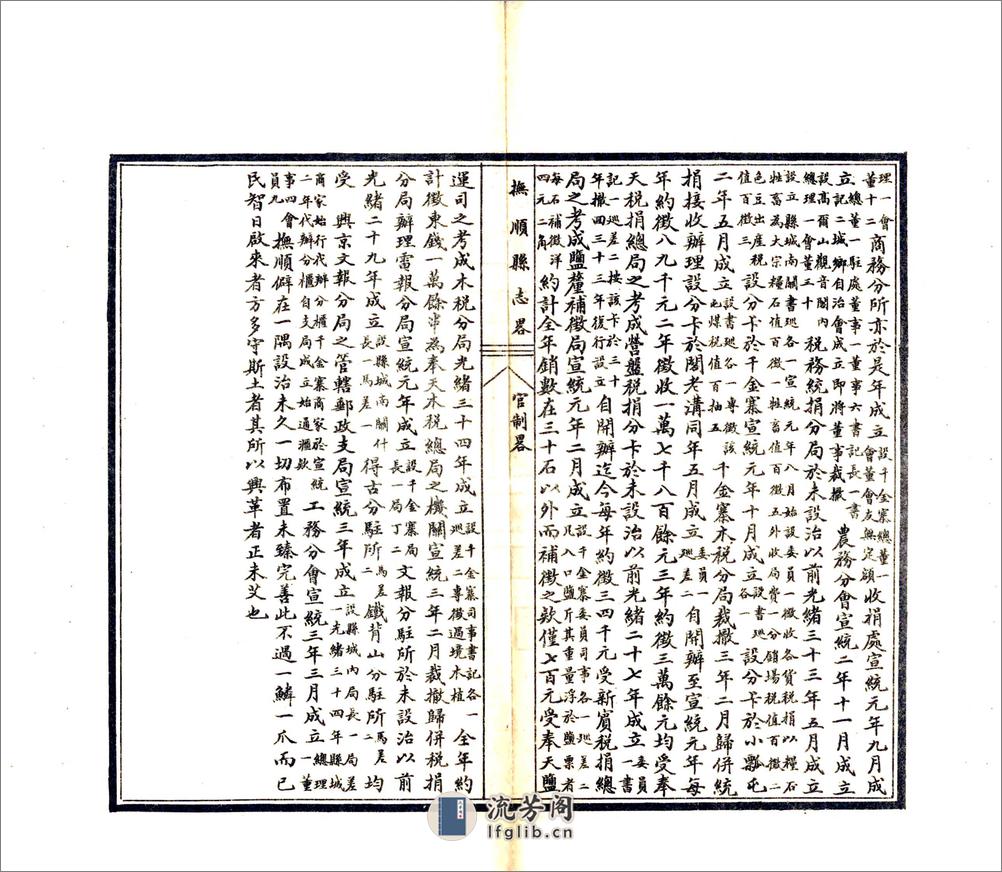 理一會董十二商務分所亦於是年成立設千金寨總董一會董會友無定額收捐處宣統元年九月成
立總董一駐處董事一董事六書記長一書記二城鄉自治會成立即將董事裁撤農務分會宣統二年十一月成立
設高爾山觀音閣內總理一會董三十稅務統捐分局於未設治以前光緒三十三年五月成立
設立縣城南關書巡各一宣統元年八月始設委員一徵收各貨稅捐以糧石牲畜為大宗糧石值百徵一牲畜值百徵五外收局費一分銷場稅值百徵二色豆出產稅值百徵三設分卡於千金寨宣統元年十月成立設書巡各一設分卡於小瓢屯
二年五月成立設書巡各一專徵該屯煤稅值百抽五千金寨木稅分局裁撤三年二月歸併統
捐接收辦理設分卡於閣老溝同年五月成立委員一巡差二自開辦至宣統元年每
年約徵八九千元二年徵收一萬七千八百餘元三年約徵三萬餘元均受奉
天稅捐總局之考成營盤稅捐分卡於未設治以前光緒二十七年成立委員一書
記一巡差二按該卡於三十年撤四三十三年復行設立自開辦迄今每年約徵三四千元受新賓稅捐總
局之考成鹽釐補徵局宣統元年二月成立設千金寨委員司事各一巡差二凡入口鹽斤其重量浮於鹽票者
每石補徵洋四元二角約計全年銷數在三十石以外而補徵之欵僅七百元受奉天鹽
撫順縣志畧
官制畧
運司之考成木稅分局光緒三十四年成立設千金寨司事書記各一巡差二專徵過境木植全年約
計徵東錢一萬餘串為奉天木稅總局之機關宣統三年二月裁撤歸併稅捐
分局辦理電報分局宣統元年成立設千金寨局長一局丁二文報分駐所於未設治以前
光緒二十九年成立設縣城南關什長一馬差一得古分駐所馬差二鐵背山分駐所馬差二均
受興京文報分局之管轄郵政支局宣統三年成立設縣城內局長一局差一光緒三十四年縣城
商家始行代辦分櫃千金寨商家於宣統二年代辦分櫃自支局成立始通滙欵工務分會宣統三年三月成立總理一董
事四會員九撫順僻在一隅設治未久一切布置未臻完善此不過一鱗一爪而已
民智日啟來者方多守斯土者其所以興革者正未艾也
流芳阁
lfglib.cn